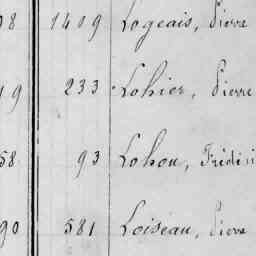 08 1409 Logeais, Pierre
19 233 Lohier, Pierre
58 93 Lohou, Frédéri
90 581 Loiseau, Pierre